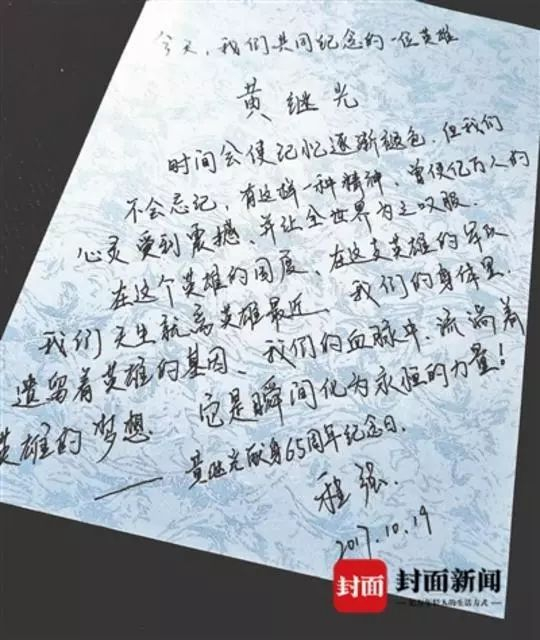 今天,我们共同纪念的一位英雄
黄继光
时间会使记忆逐渐褪色,但我们
不会忘记,有这样一种精神、曾使亿万人的
心灵受到震撼、并让全世界为之叹服.
在这个英雄的国度、在这支英雄的军队
我们天生就离英雄最近、我们的身体里.
遗留着英雄的基因、我们的血脉中.流淌着
英雄的梦想. 它是瞬间化为永恒的力量!
——黄继光献身65周年纪念日.
程强.
2017.10.19
封面
封面新闻
亿万年轻人的生活方式